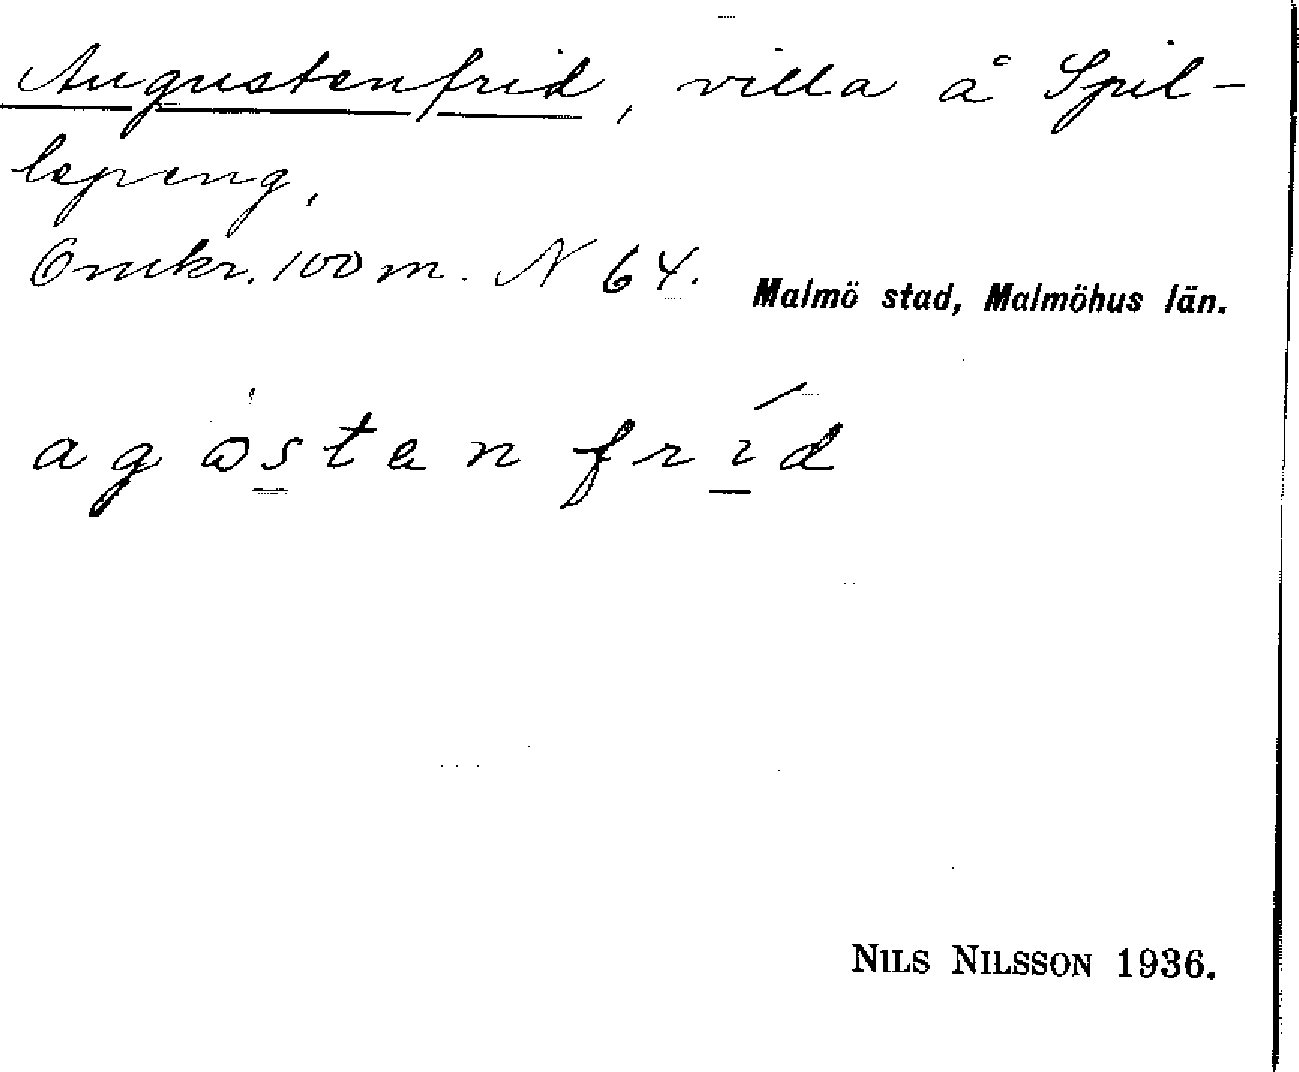 Augustenfrid, villa å Spil-
lepeng,
Omkr. 100 m. N 64.
Malmö stad, Malmöhus län.
NILS NILSSON 1936.